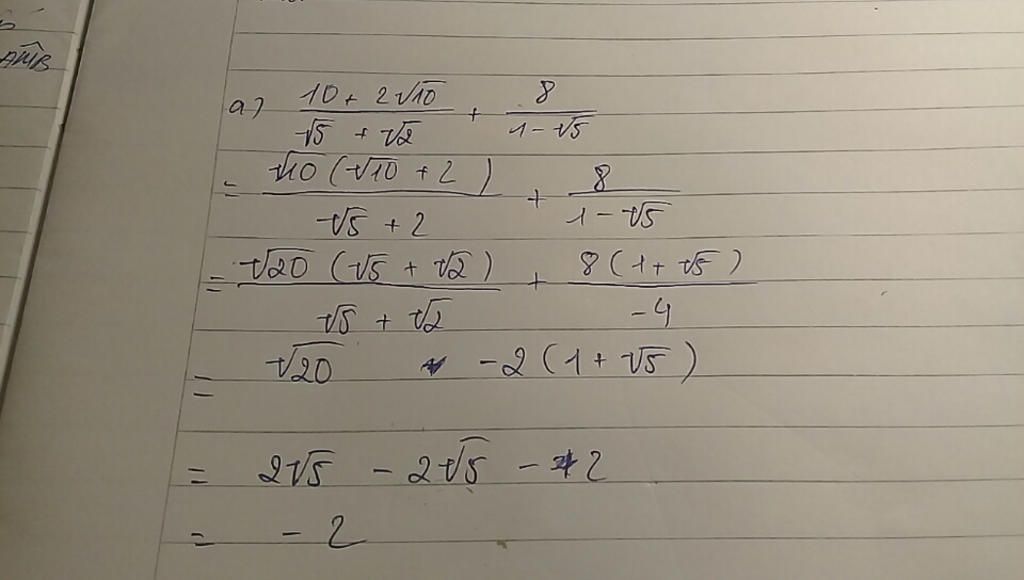 AMB
a) (10 + 2√10)/(√5 + √2) + 8/(1 - √5)
= √10(√10 + 2)/(√5 + 2) + 8/(1 - √5)
= √20(√5 + √2)/(√5 + √2) + 8(1 + √5)/(-4)
= √20 - 2(1 + √5)
= 2√5 - 2√5 - 2
= - 2